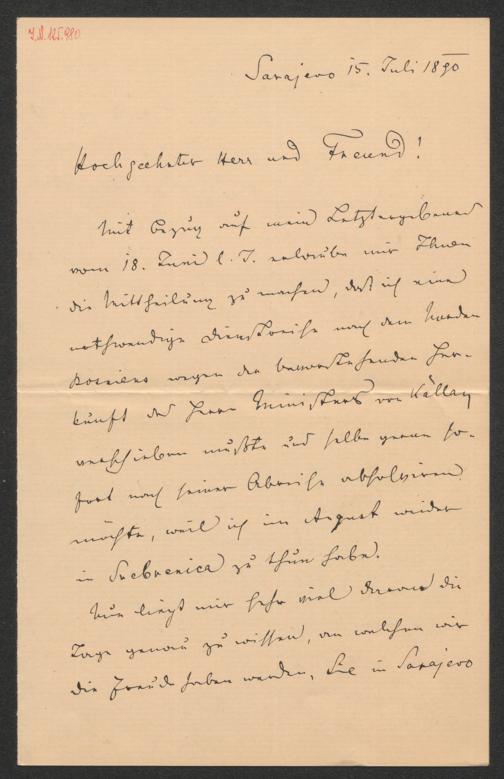 I.N. 125.980
Sarajevo 15. Juli 1890
Hochgeehrter Herr und Freund!
Mit Bezug auf mein Letztergebenes
vom 18. Juni l. J. erlaube mir Ihnen
die Mittheilung zu machen, daß ich eine
nothwendige Dienstreise nach dem Norden
Bosniens wegen der bevorstehenden Her-
kunft des Herrn Ministers von Kállay
verschieben mußte und selbe gerne so-
fort nach seiner Abreise absolviren
möchte, weil ich im August wieder
in Srebrenica zu thun habe.
Nun liegt mir sehr viel daran die
Tage genau zu wissen, an welchen wir
die Freude haben werden, Sie in Sarajevo